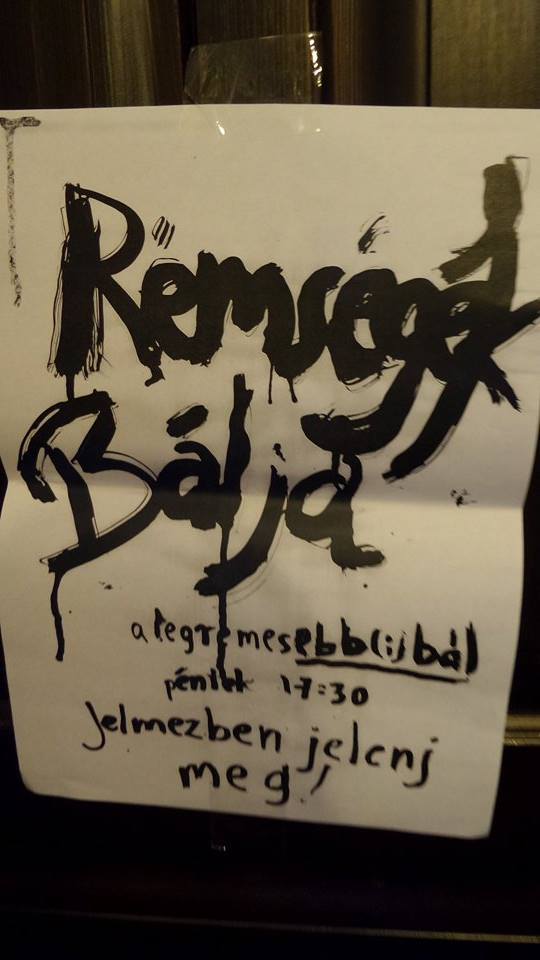 Rémségek
Bálja
a legrémesebb(i) bál
péntek 17:30
Jelmezben jelenj
meg!